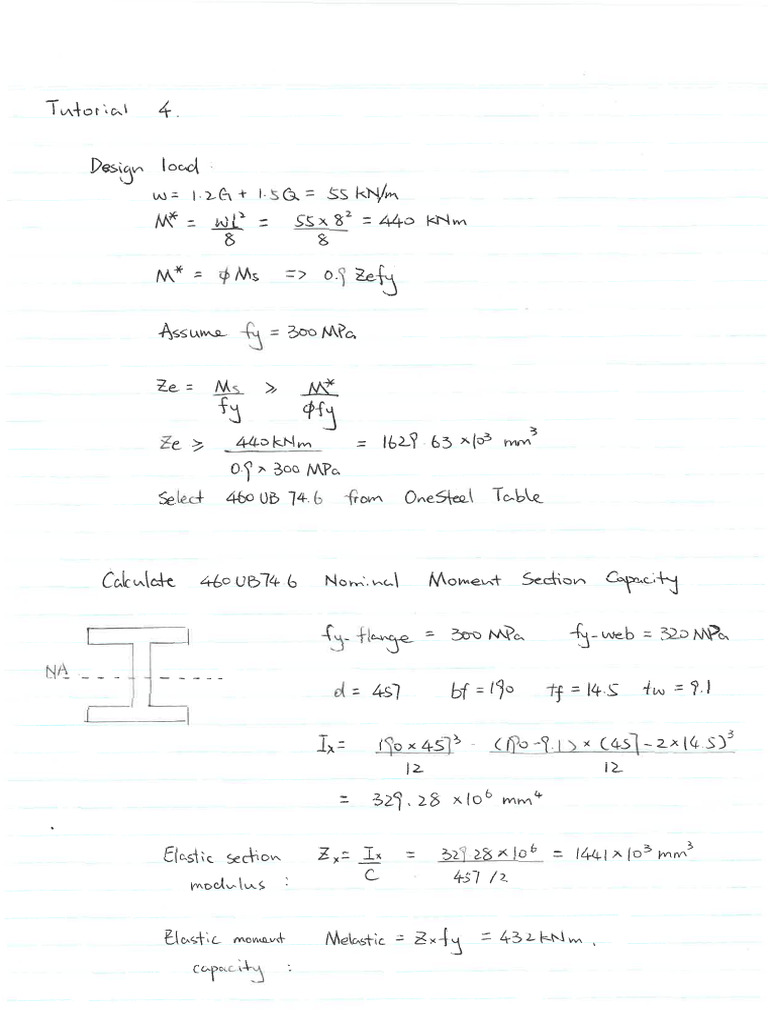 Tutorial 4.
Design load:
w = 1.2G + 1.5Q = 55 kN/m
M* = wL²/8 = 55 × 8²/8 = 440 kNm
M* = ϕMs => 0.9 Zefy
Assume fy = 300 MPa
Ze = Ms/fy ⩾ M*/ϕfy
Ze ⩾ 440kNm/0.9 × 300 MPa = 1629.63 ×10³ mm³
Select 460 UB 74.6 from OneSteel Table
Calculate 460UB74.6 Nominal Moment Section Capacity
fy-flange = 300 MPa fy-web = 320 MPa
NA
d = 457 bf = 190 tf = 14.5 tw = 9.1
Ix = 190 × 457³/12 - (190 - 9.1) × (457 - 2 × 14.5)³/12
= 329.28 × 10⁶ mm⁴
Elastic section Zx = Ix/C = 329.28 × 10⁶/457/2 = 1441 × 10³ mm³
modulus :
Elastic moment Melastic = Zxfy = 432 kNm.
capacity :